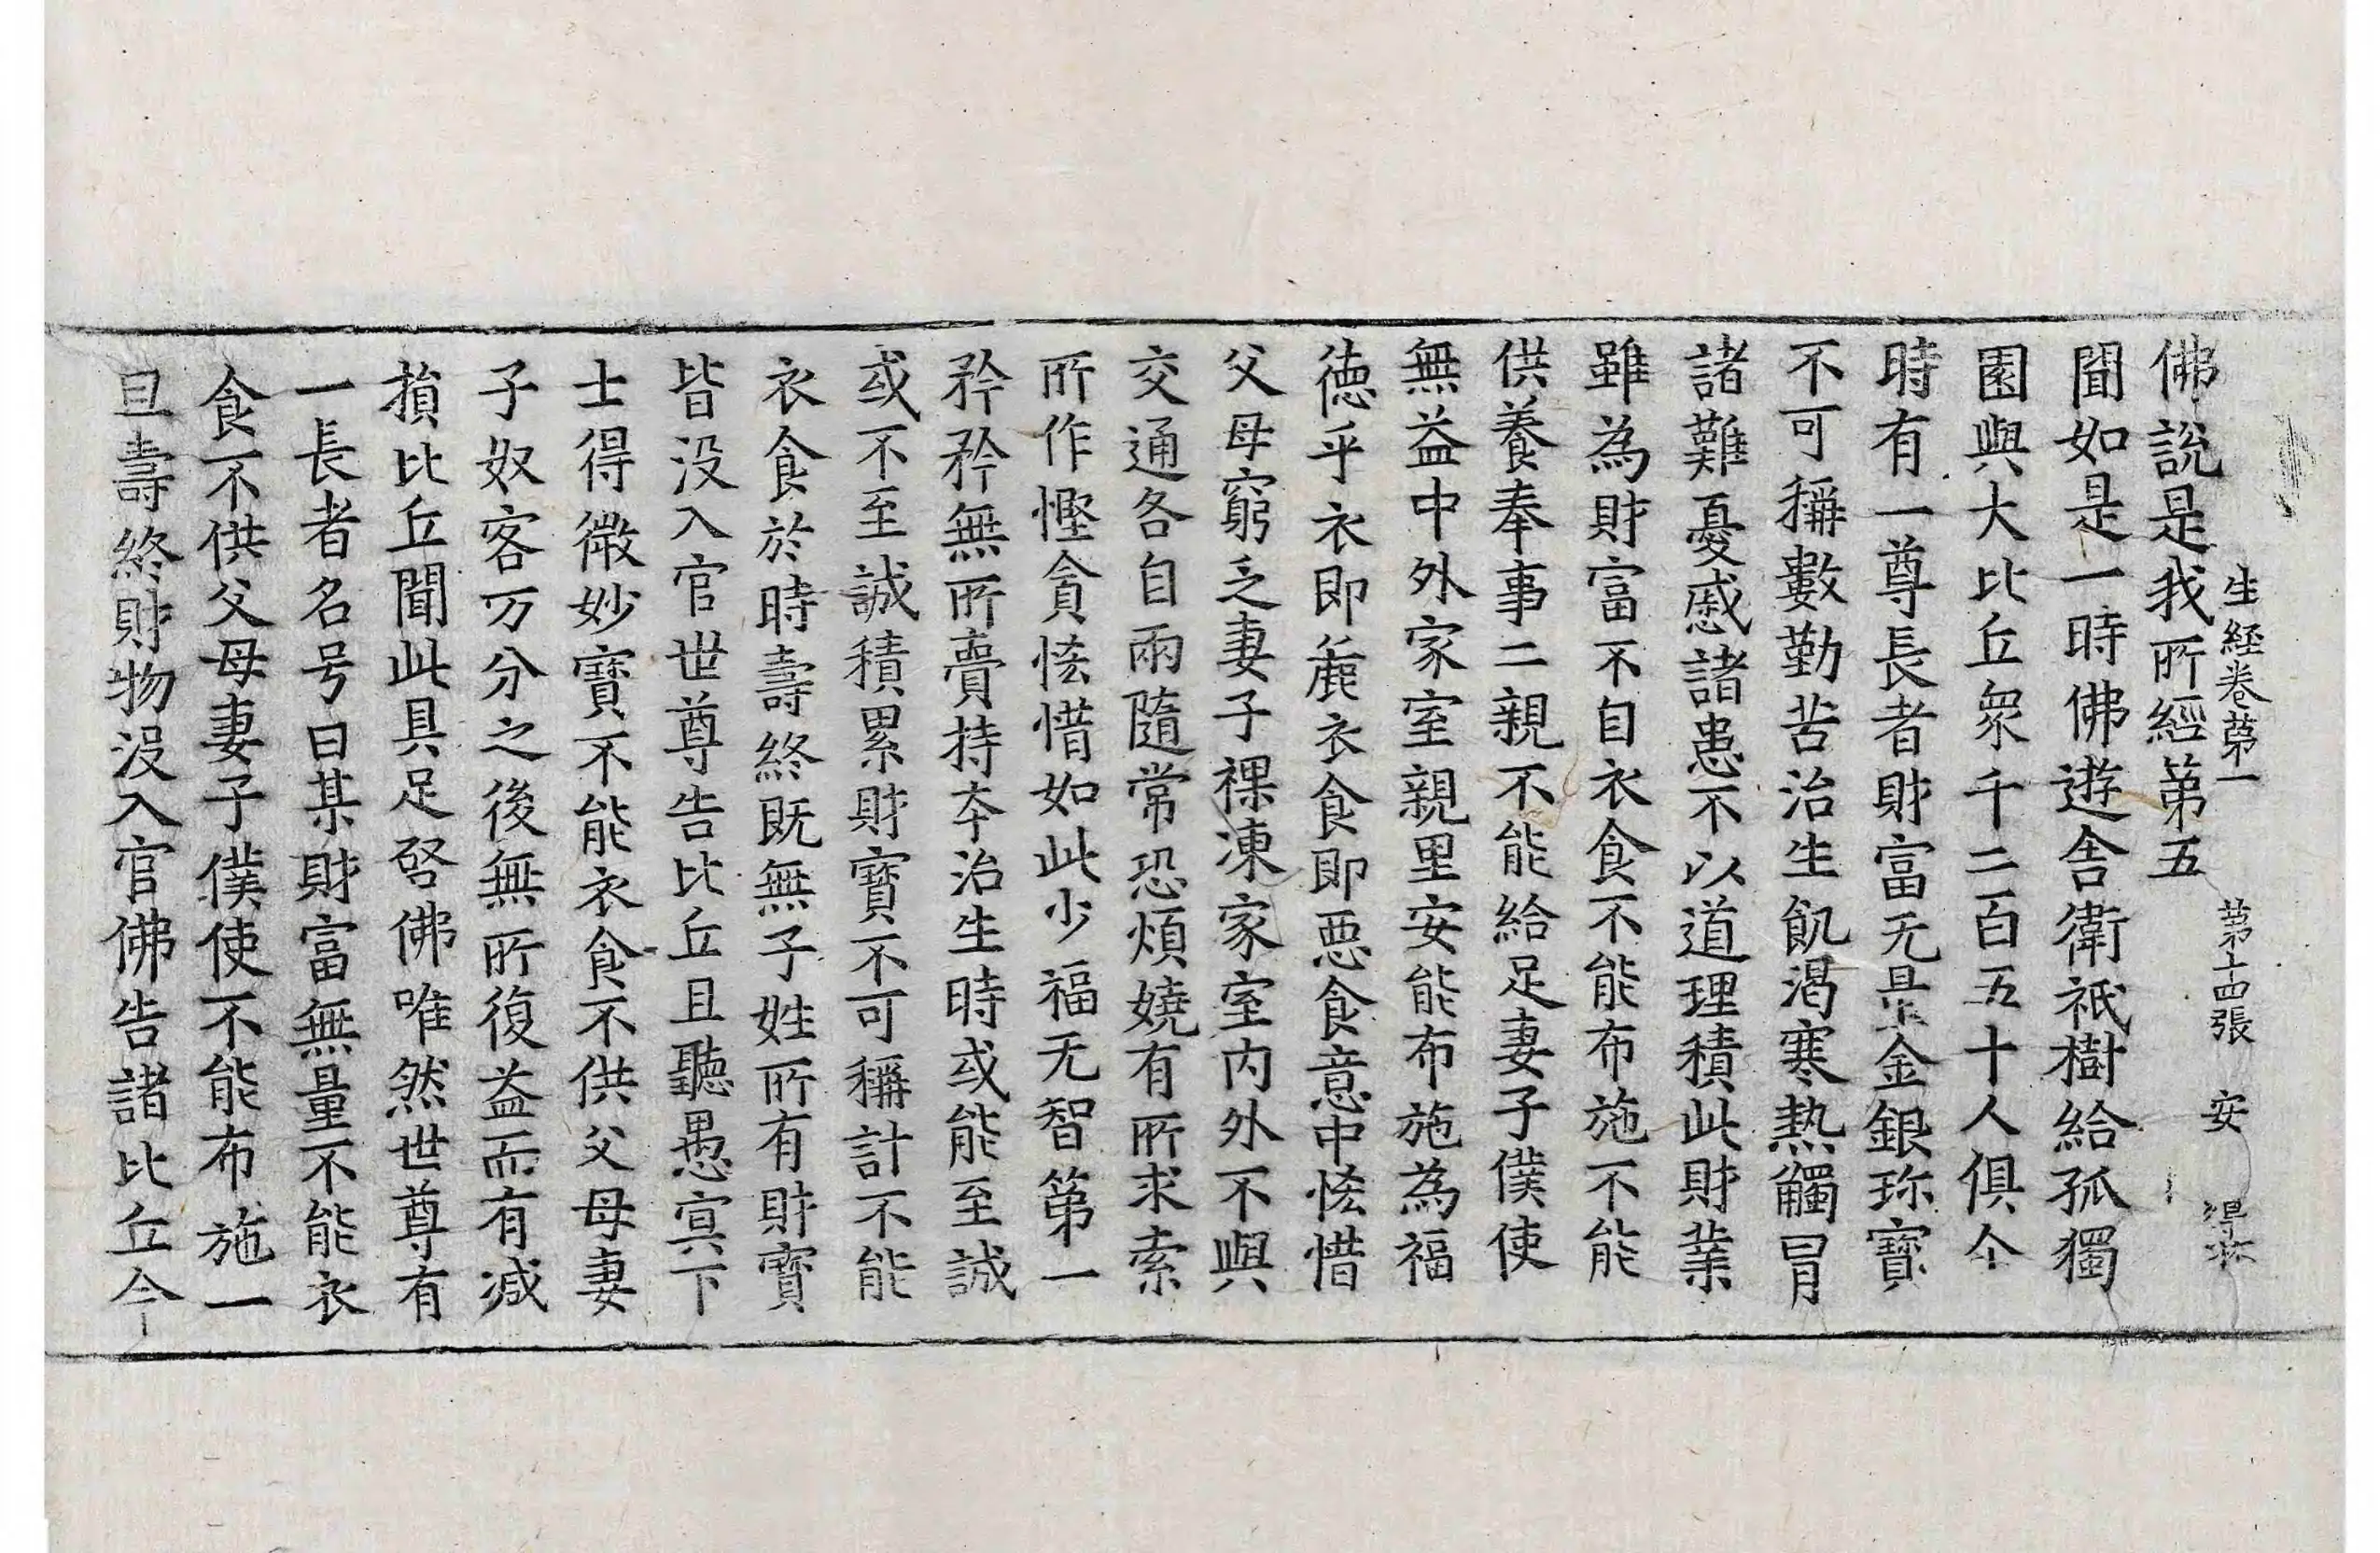 生經卷第一 第十四張 安
佛説是我所經第五
聞如是一時佛遊舎衛祇樹給孤獨
園與大比丘衆千二百五十人俱尒
時有一尊長者財富无量金銀珎寶
不可稱數勤苦治生飢渴寒熱觸冒
諸難憂慼諸患不以道理積此財業
雖為財富不自衣食不能布施不能
供養奉事二親不能給足妻子僕使
無益中外家室親里安能布施為福
徳乎衣即麁衣食即惡食意中恡惜
父母窮乏妻子裸凍家室内外不與
交通各自兩隨常恐煩嬈有所求索
所作慳貪恡惜如此少福无智第一
矜矜無所賷持夲治生時或能至誠
或不至誠積累財寶不可稱計不能
衣食於時壽終既無子姓所有財寶
皆没入官世尊告比丘且聽愚㝠下
士得微妙寶不能衣食不供父母妻
子奴客万分之後無所復益而有减
損比丘聞此具足啓佛唯然世尊有
一長者名号曰某財富無量不能衣
食不供父母妻子僕使不能布施一
旦壽終財物没入官佛告諸比丘今